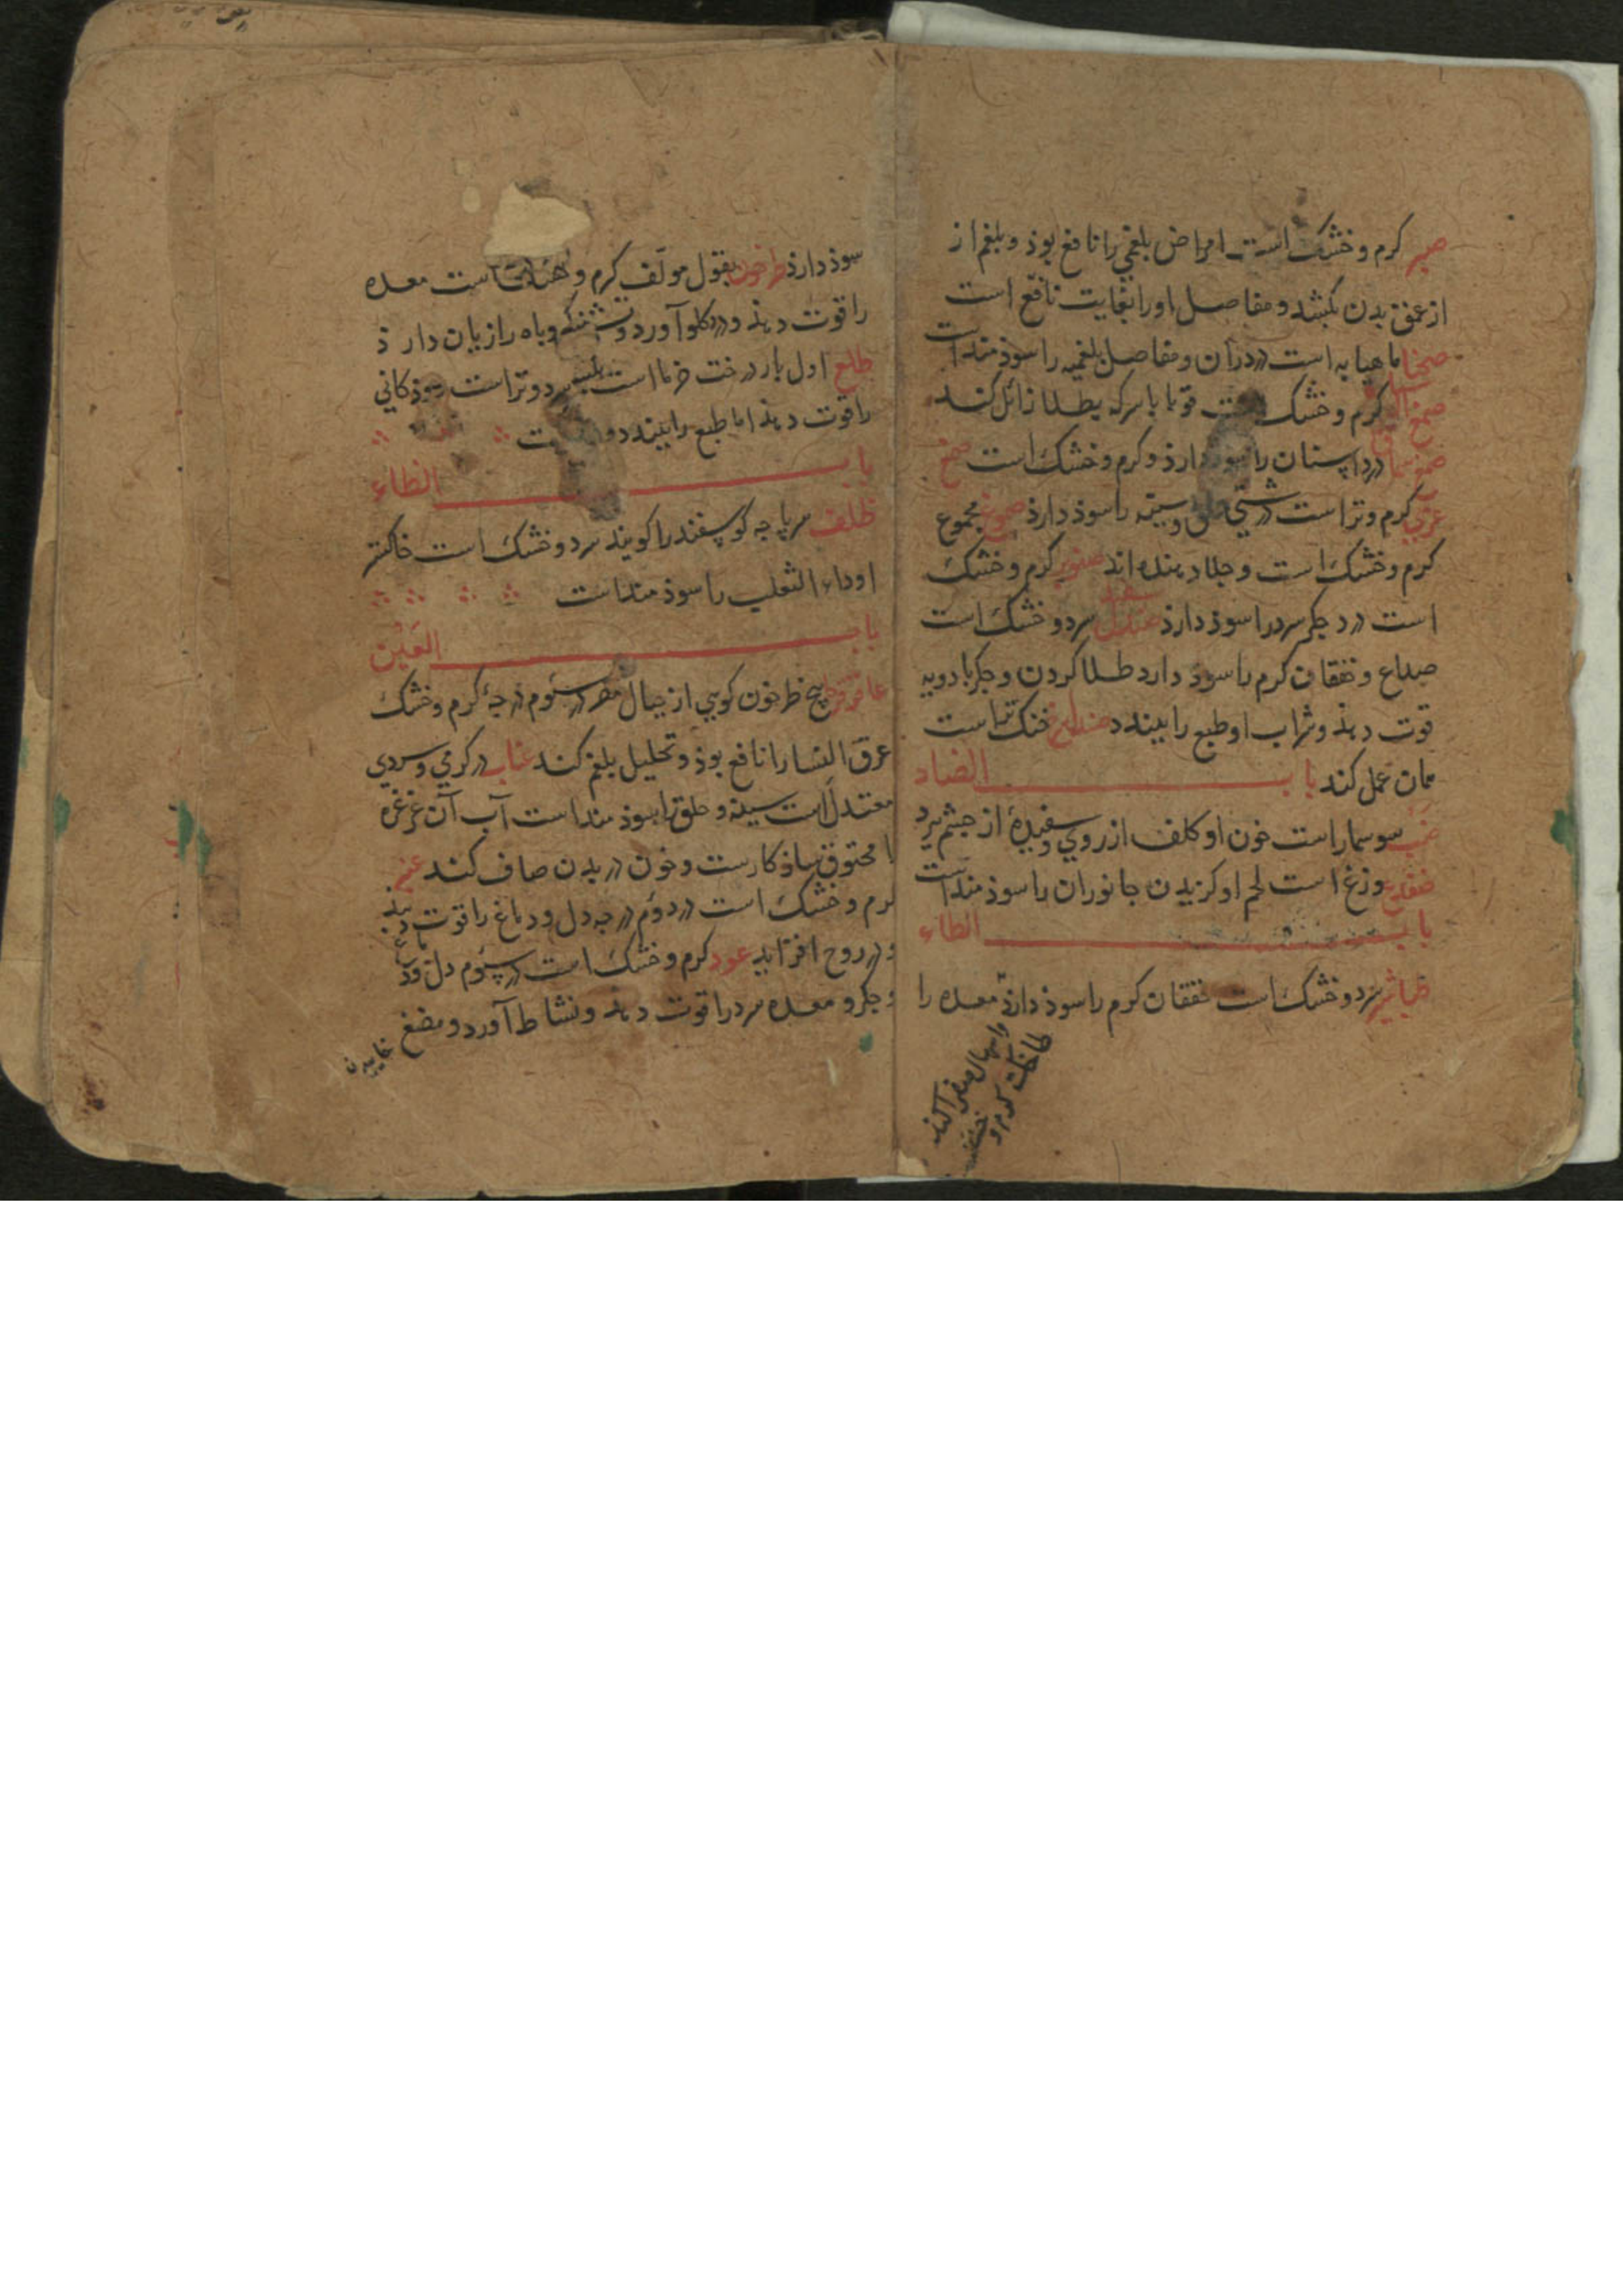 صبر کرم و خشک است امراض بلغمي را نافع بوذ و بلغم از
از عمق بدن بکشد و مفاصل او را بغایت نافع است
صحنا ماهیابه است درد ران و مفاصل بلغمیه را سوذمند است
صمغ کرم و خشک است قوبا با سرکه بطلا زائل کند
درد اسنان را سوذ دارذ و کرم و خشک است صمغ
عربي کرم و تر است درشتي حلق و سینه را سوذ دارذ صموغ مجموع
کرم و خشک است و جلا دهنده اند صنوبر کرم و خشک
است درد جکر سرد را سوذ دارذ صندل سفید سرد و خشک است
صداع و خفقان کرم را سوذ دارد طلا کردن و جکر بادویه
قوت دهذ و شراب او طبع را ببندد خنک تر است
همان عمل کند باب الضاد
ضب سوسمار است خون او کلف از روي و سفیدهٔ از چشم ببرد
ضفدع وزغ است لحم او کزیدن جانوران را سوذمند است
باب الطاء
طباشیر سرد و خشک است خفقان کرم را سوذ دارذ معده را
و اسهال صفرا کند
کرم و خشک
سوذ دارذ طرخون بقول مولف کرم و خشک است معده
را قوت دهذ و درد کلو آورد و تشنکي و باه را زیان دارذ
طلع اول بار درخت خرما است سرد و تر است
را قوت دهذ اما طبع را ببندد
باب الظاء
ظلف سرپاچه کوسفند را کویند سرد و خشک است خاکستر
او داء الثعلب را سوذمند است
باب العین
عاقرقرحا بیخ طرخون کوهي از جبال مصر در سئوم درجهٔ کرم و خشک
عرق النسا را نافع بوذ و تحلیل بلغم کند عناب در کرمي و سردي
معتدل است سینه و حلق را سوذمند است آب آن غرغره
کند و خون در بدن صاف کند عنبر
کرم و خشک است در دوم درجه دل و دماغ را قوت دهذ
و در روح افزاید عود کرم و خشک است در سئوم دل و دماغ
و جکر و معده سرد را قوت دهذ و نشاط آورد و مضغ
خاییدن